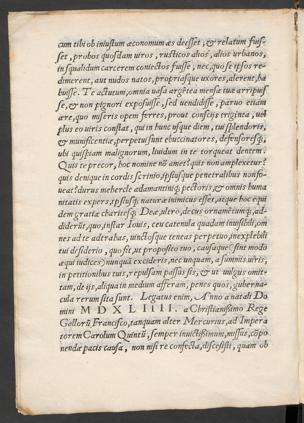 cum tibi ob iniustum æconomum æs deesset, & relatum fuis-
set, probos quosdam viros, rusticos alios, alios urbanos,
in squalidum carcerem coniectos fuisse, nec, quo se ipsos re-
dimerent, aut nudos natos, propriásque uxores, alerent, ha
buisse. Te actutum, omnia vasa argētea mensæ tuæ arripuis
se, & non pignori exposuisse, sed vendidisse, paruo etiam
ære, quo miseris opem ferres,
plus eo viris constat, qui in hunc usque diem, tui splendoris,
& munificentiæ, perpetui sunt ebuccinatores, defensoresq́;
ubi quispiam malignorum, liuidum in te torqueat dentem.
Quis te precor, hoc nomine nō amet? quis non amplexetur?
quis denique in cordis scrinio, ipsiusque penetralibus non fo-
ueat? durus mehercle adamantiniq́; pectoris, & omnis huma
nitatis expers, ipsiusq́; naturæ inimicus esset, atque hoc equi
dem gratiæ charitesq́; Deæ, ultro, decus ornamētumq́;, ad-
diderūt, quo, instar Iouis, ceu catenula quadam inuisibili, om
nes ad te adtrahas, unctosque teneas perpetuo, inexplebili
tui desiderio, quo fit, ut proposito tuo, causaque (sint modo
æqui iudices) nunquā excideris, nec unquam, a summis viris,
in petitionibus tuis, repulsam passus sis, & ut vulgus omit-
tam, de ijs, aliqua in medium afferam, penes quos, guberna-
cula rerum sita sunt. Legatus enim, Anno a natali Do
mini MDXLIIII. a Christianissimo Rege
Gallorū Francisco, tanquam alter Mercurius, ad Impera
torem Carolum Quintū, semper inuictissimum, missus, cōpo
nendæ pacis causa, non nisi re confecta, discessisti, quam ob